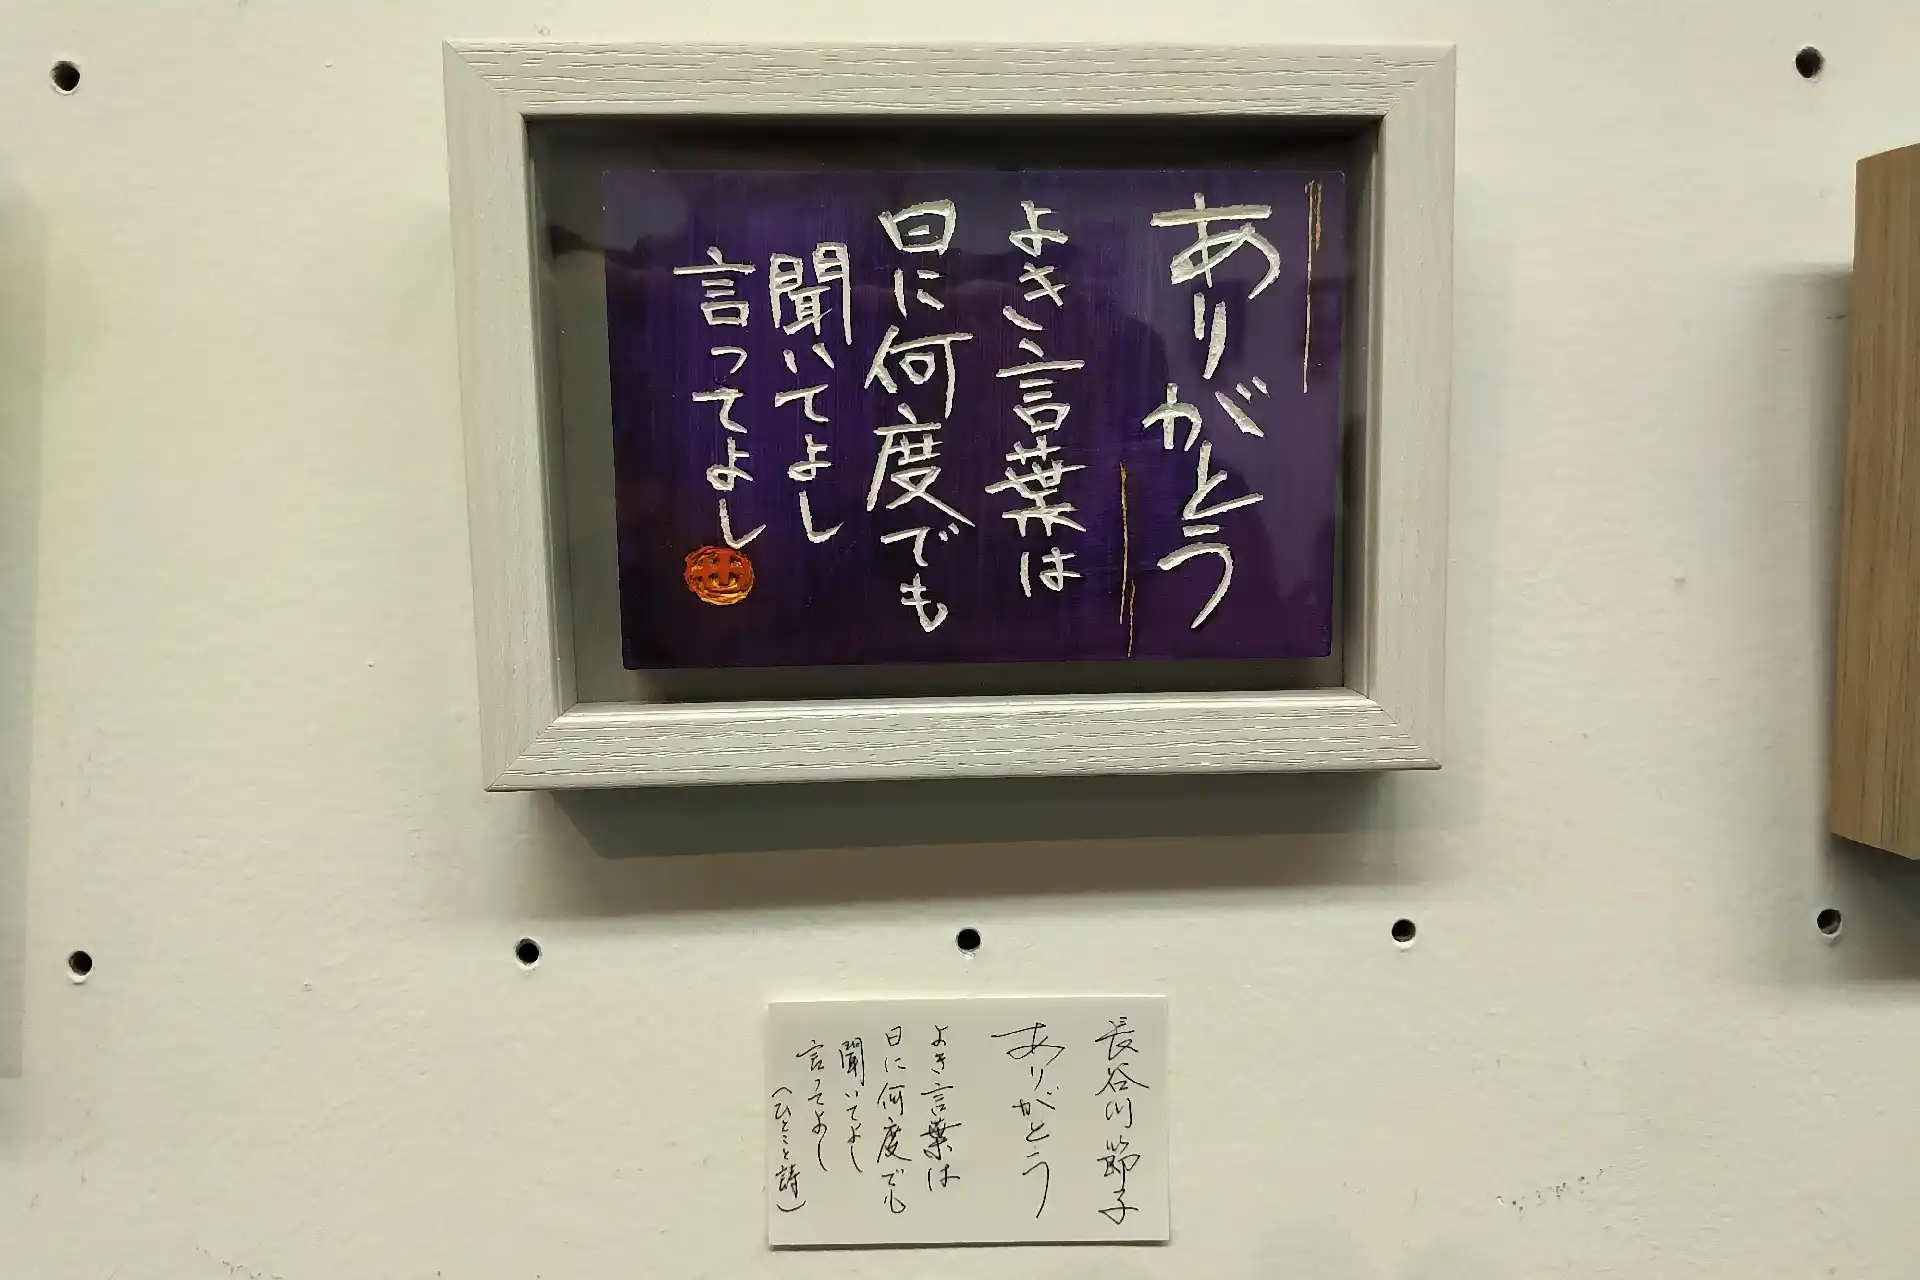 ありがとう
よき言葉は
日に何度でも
聞いてよし
言ってよし
長谷川節子
ありがとう
よき言葉は
日に何度でも
聞いてよし
言ってよし
（ひとこと詩）